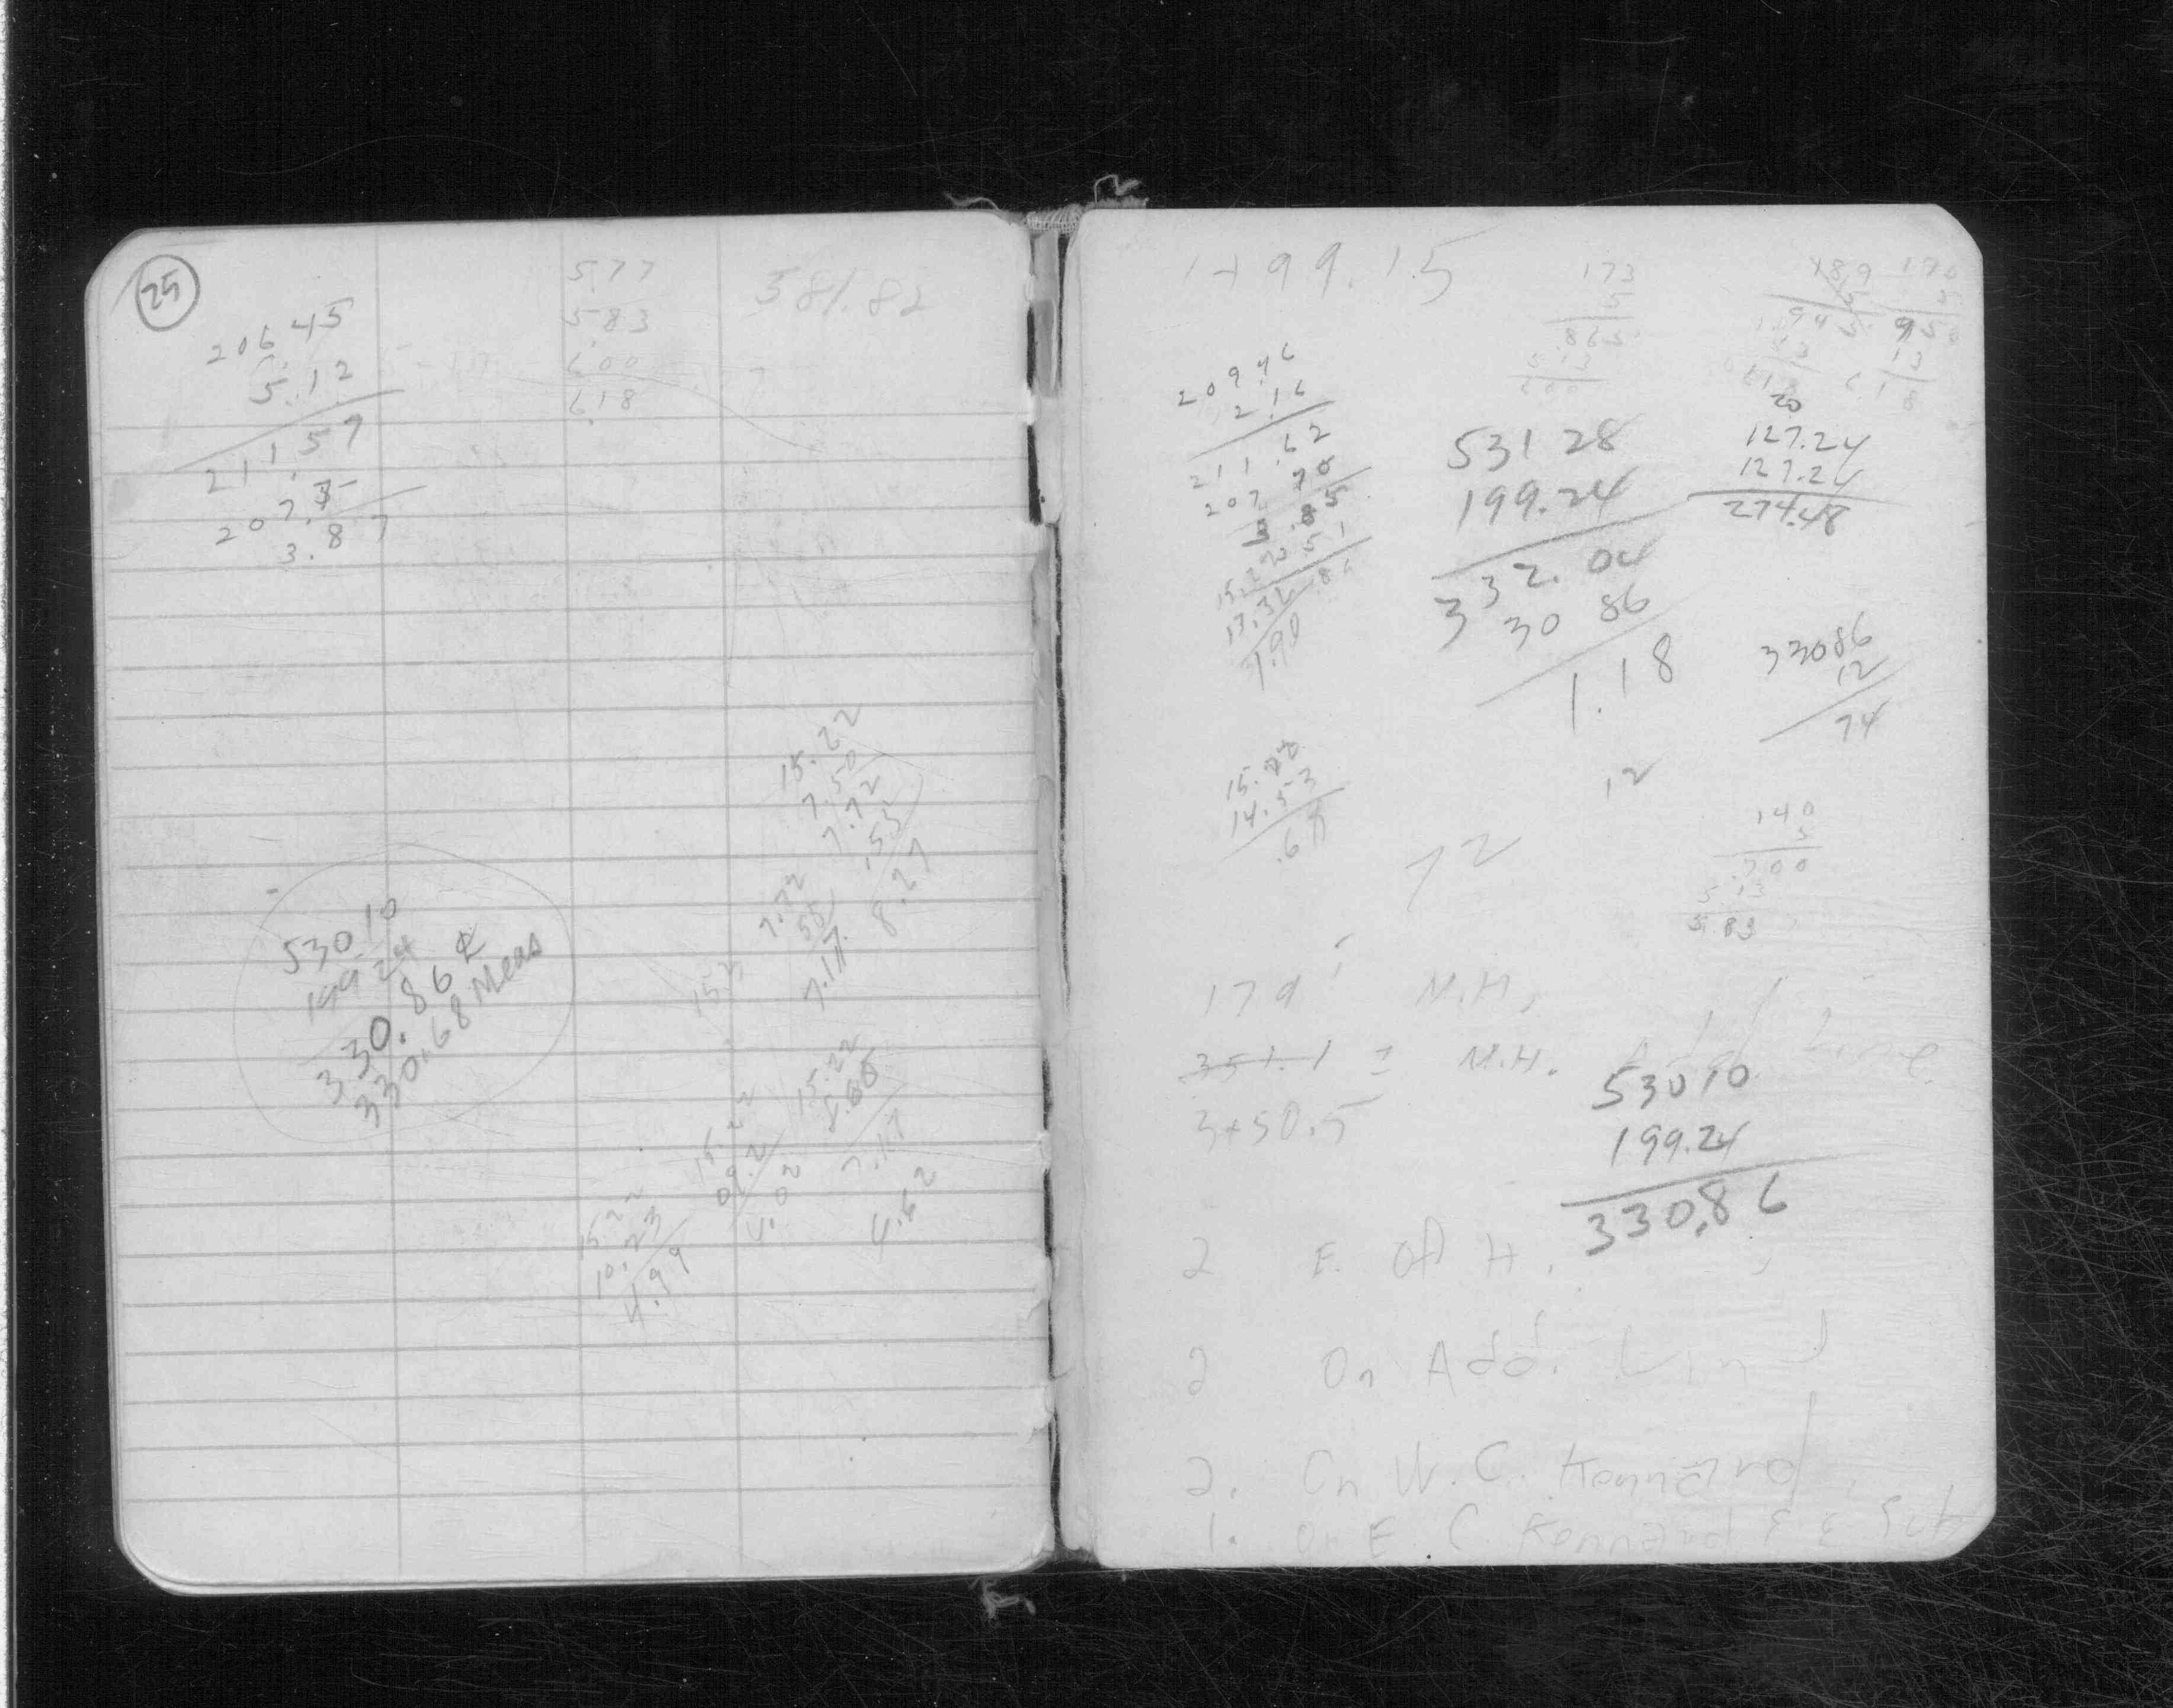 25
206.45
5.12
211.57
207.7
3.87
5.77
5.83
6.00
6.18
581.82
15.22
7.50
7.72
.55
8.27
7.72
55
7.17
15.2
530.10
199.24
330.86 ¢
330.68 Meas
15.22
8.05
7.17
15.22
4.02
4.62
15.22
10.23
4.99
1+99.15
173
5
.865
5.13
600
189
5
945
170
13
618
209.46
2.16
211.62
207.70
15.22
17.36
1.90
531 28
199.24
332.04
330 86
1.18
20
127.24
127.24
274.48
33086
12
74
15.22
14.53
12
72
140
5
.700
5.13
5.83
179' M.H.
351.1 = M.H. Add Line
3+50.5
53010
199.24
330.86
2 E. of H.
2 On Add. Lin
2. On W. C. Kennard
1. On E. C. Kennard